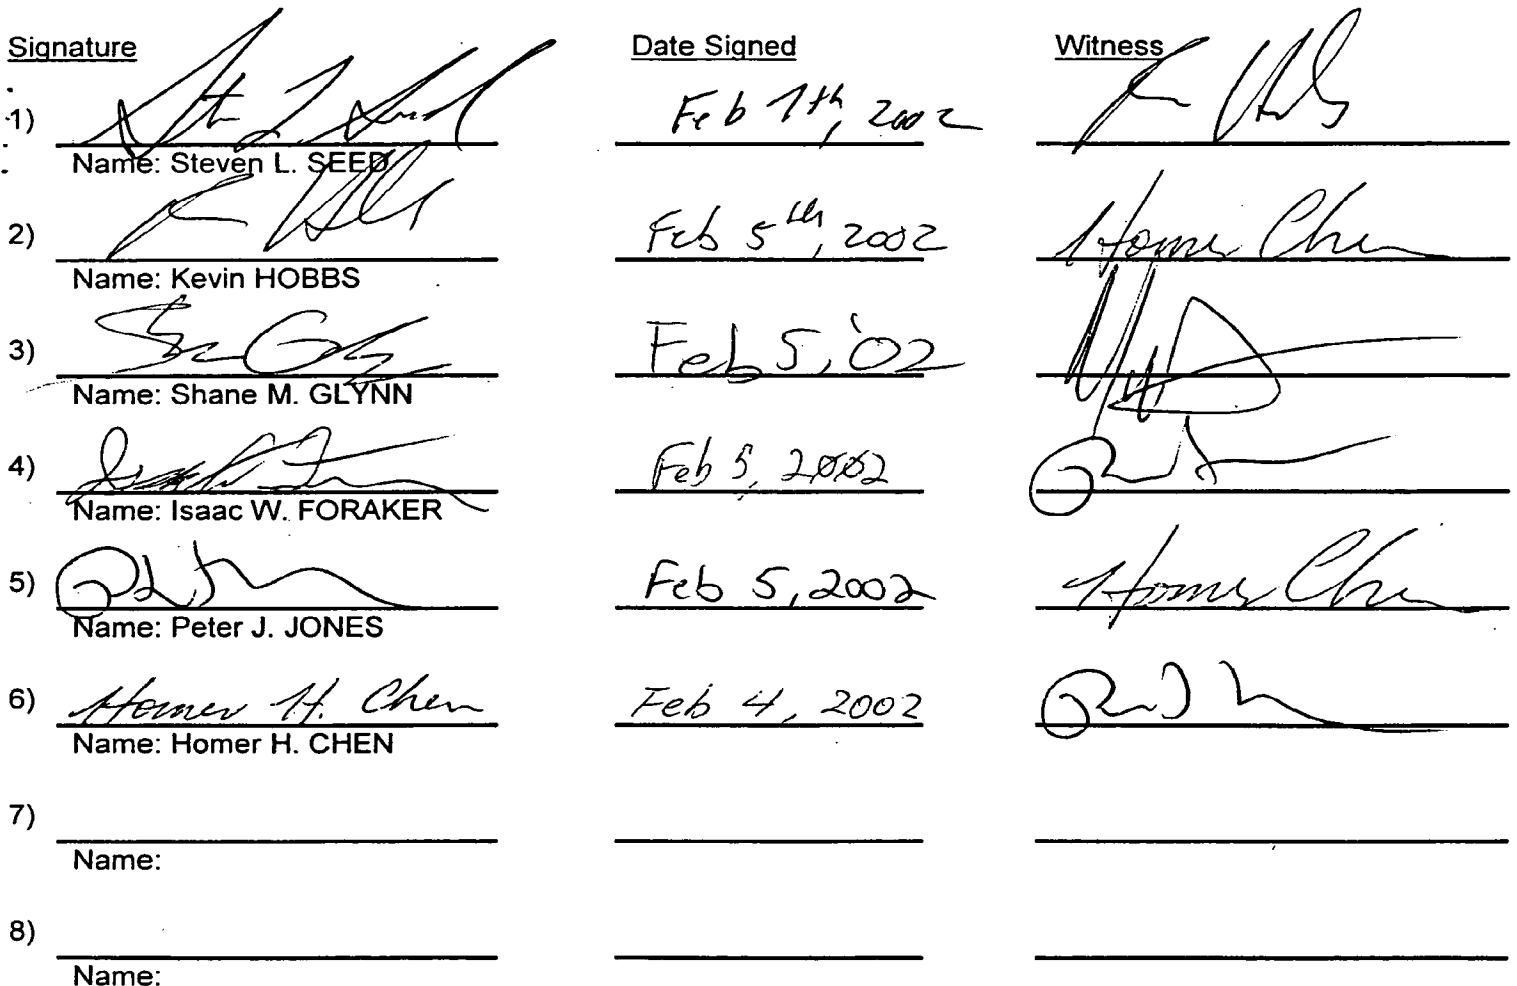 Signature Date Signed Witness
1) Steven L. Seed Feb 7th, 2002
Name: Steven L. SEED
2) Feb 5th, 2002 Homer Chen
Name: Kevin HOBBS
3) Feb 5, '02
Name: Shane M. GLYNN
4) Feb 5, 2002
Name: Isaac W. FORAKER
5) Feb 5, 2002 Homer Chen
Name: Peter J. JONES
6) Homer H. Chen Feb 4, 2002
Name: Homer H. CHEN
7)
Name:
8)
Name: